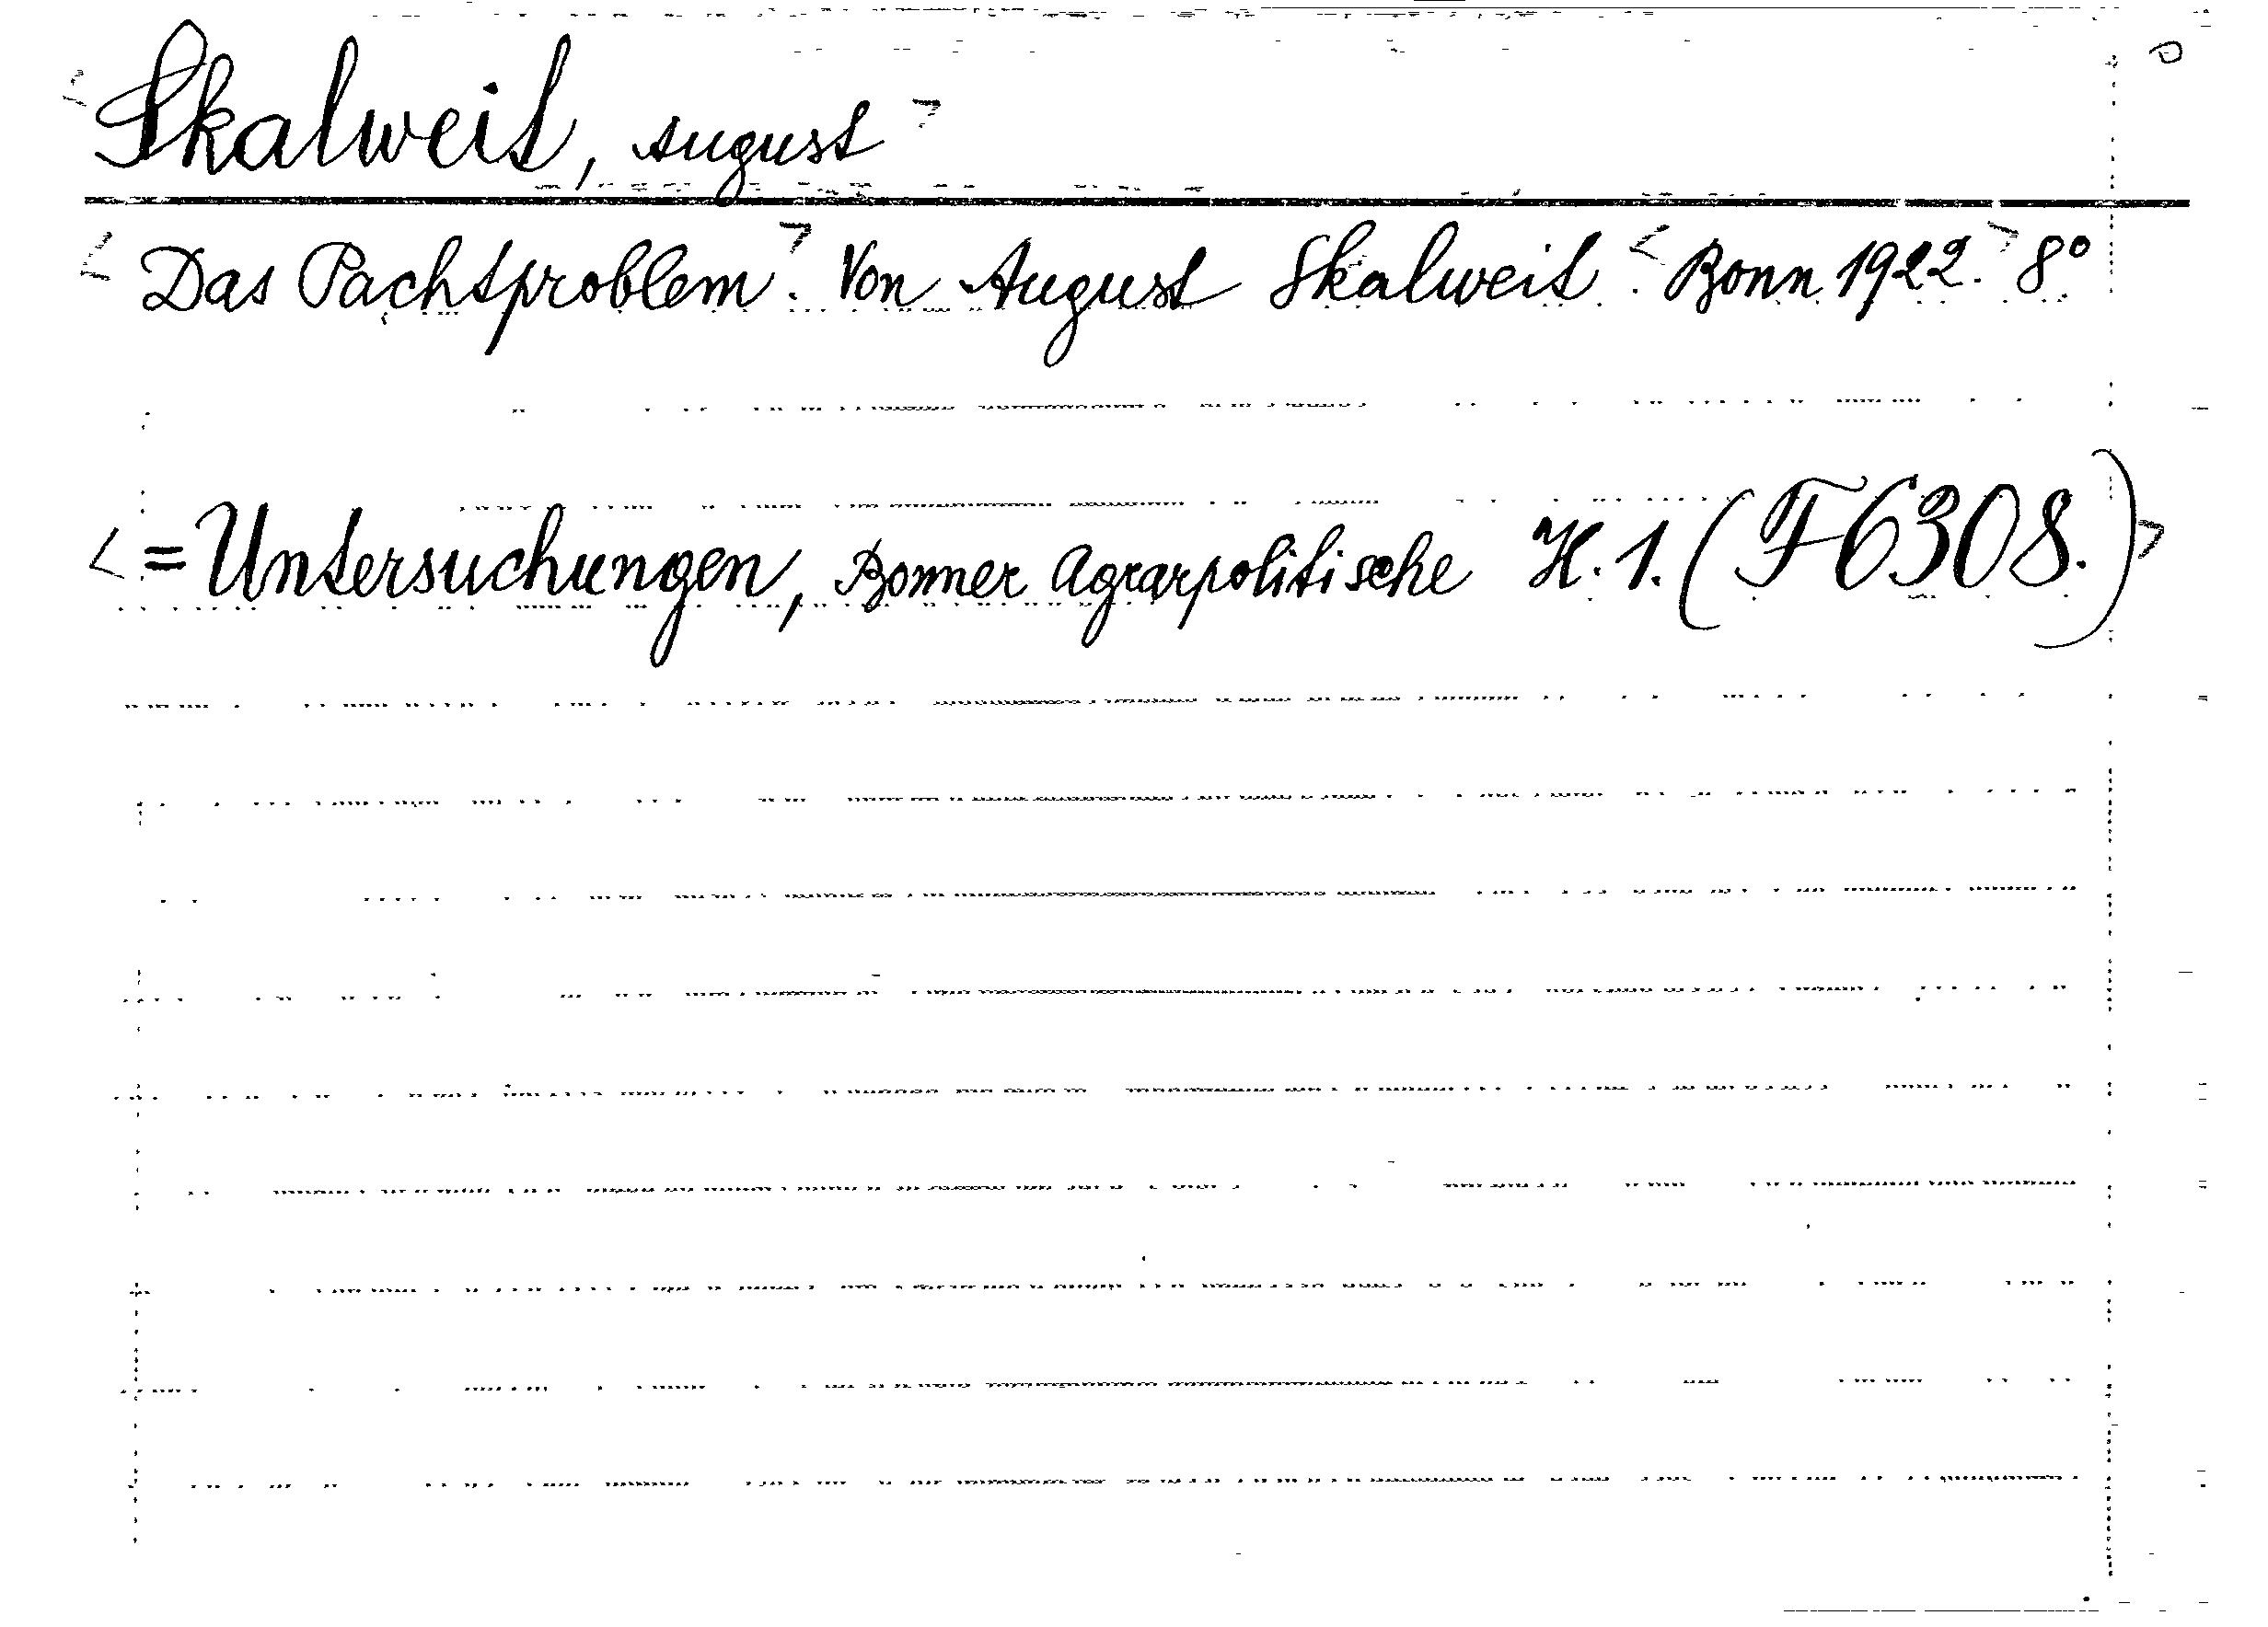 <Skalweit, August>
<Das Pachtproblem>. Von August Skalweit. <Bonn 1922.> 8°
<=Untersuchungen, Bonner Agrarpolitische H. 1. (F6308.)>